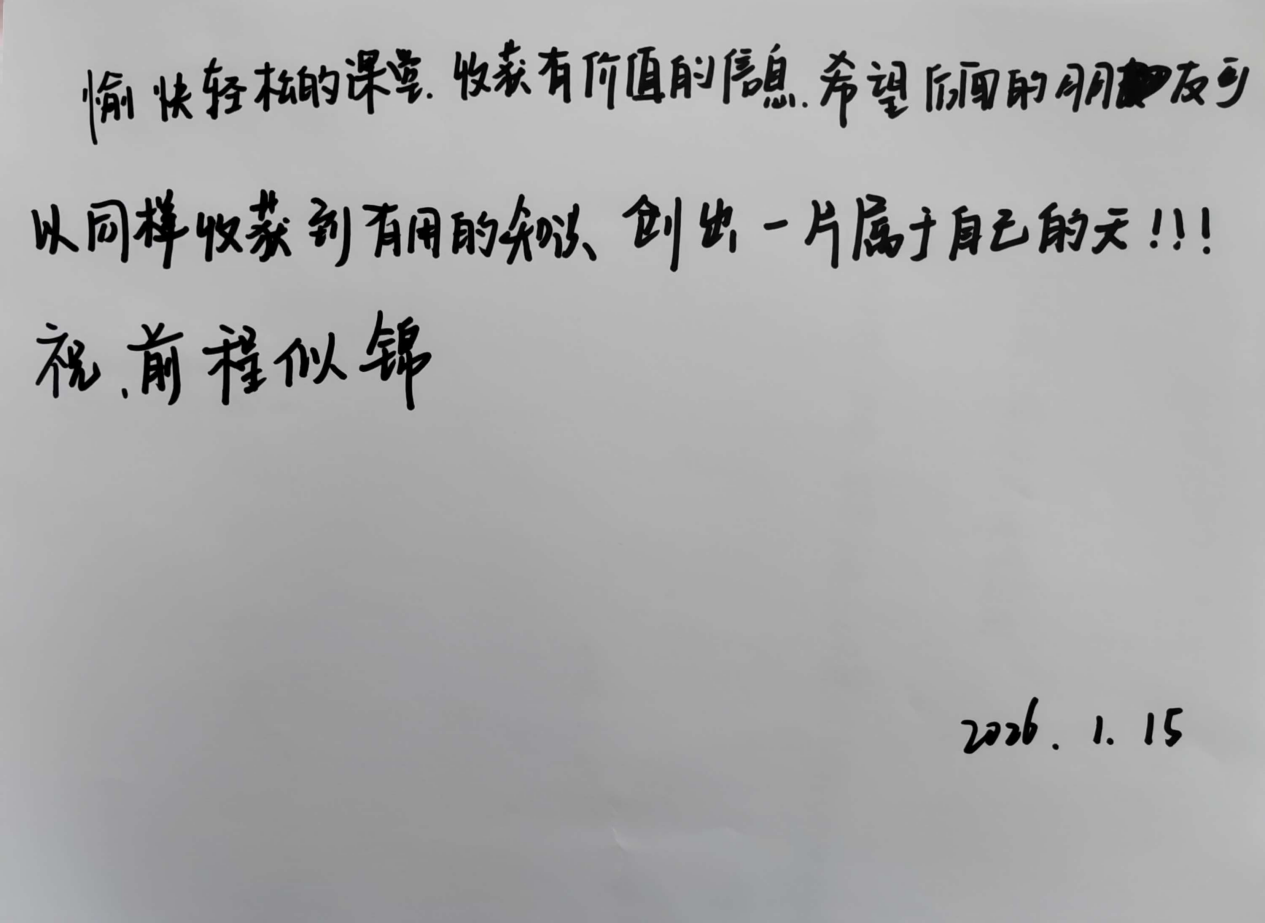 愉快轻松的课堂.收获有价值的信息.希望后面的朋友可
以同样收获到有用的知识、创出一片属于自己的天!!!
祝.前程似锦
2026.1.15